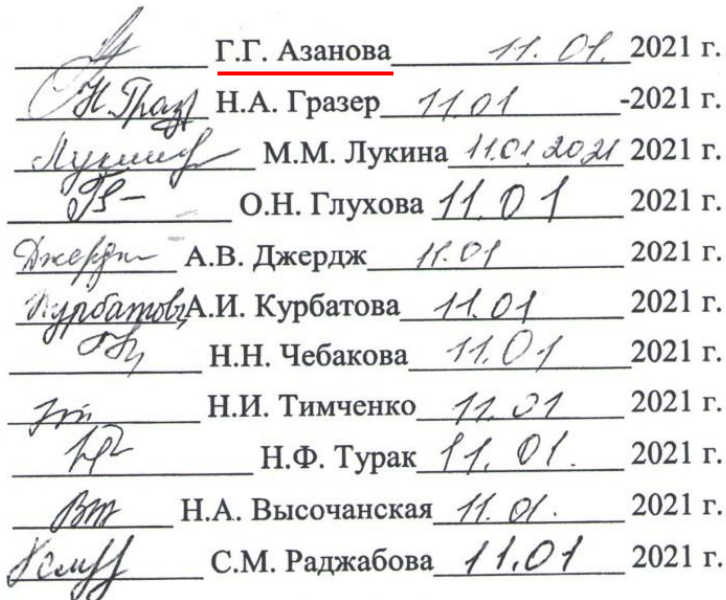 Г.Г. Азанова 11.01. 2021 г.
Н.А. Гразер 11.01 -2021 г.
М.М. Лукина 11.01.2021 2021 г.
О.Н. Глухова 11.01 2021 г.
Джердж А.В. Джердж 11.01 2021 г.
Курбатова А.И. Курбатова 11.01 2021 г.
Н.Н. Чебакова 11.01 2021 г.
Н.И. Тимченко 11.01 2021 г.
Н.Ф. Турак 11.01. 2021 г.
Н.А. Высочанская 11.01. 2021 г.
С.М. Раджабова 11.01 2021 г.